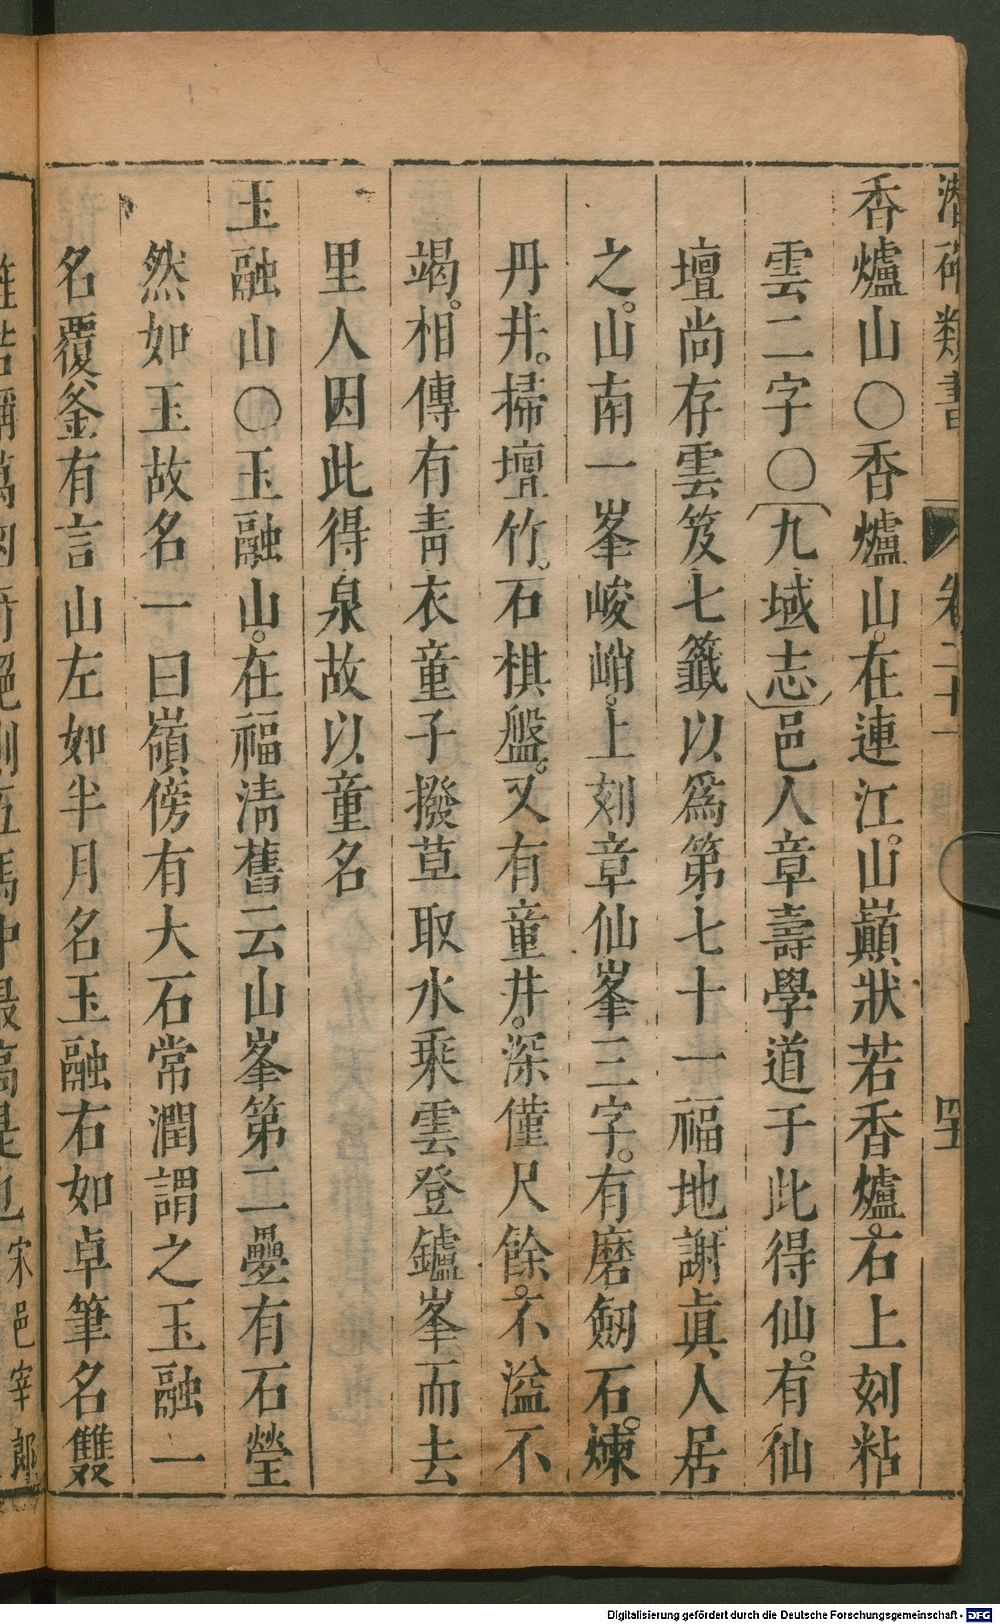 潛確類書 卷二十一 四五
香爐山〇香爐山。在連江。山巓狀若香爐。石上刻粘
雲二字〇九域志邑人章壽學道于此得仙。有仙
壇尚存雲笈七籤以爲第七十一福地謝眞人居
之。山南一峯峻峭。上刻章仙峯三字。有磨劒石。煉
丹井。掃壇竹。石棋盤。又有童井。深僅尺餘。不溢不
竭。相傳有靑衣童子撥草取水乘雲登鑪峯而去
里人因此得泉故以童名
玉融山〇玉融山。在福淸舊云山峯第二疊有石瑩
然如玉故名一曰嶺傍有大石常潤謂之玉融一
名覆釜有言山左如半月名玉融右如卓筆名雙
宋邑宰郎
Digitalisierung gefördert durch die Deutsche Forschungsgemeinschaft - DFG